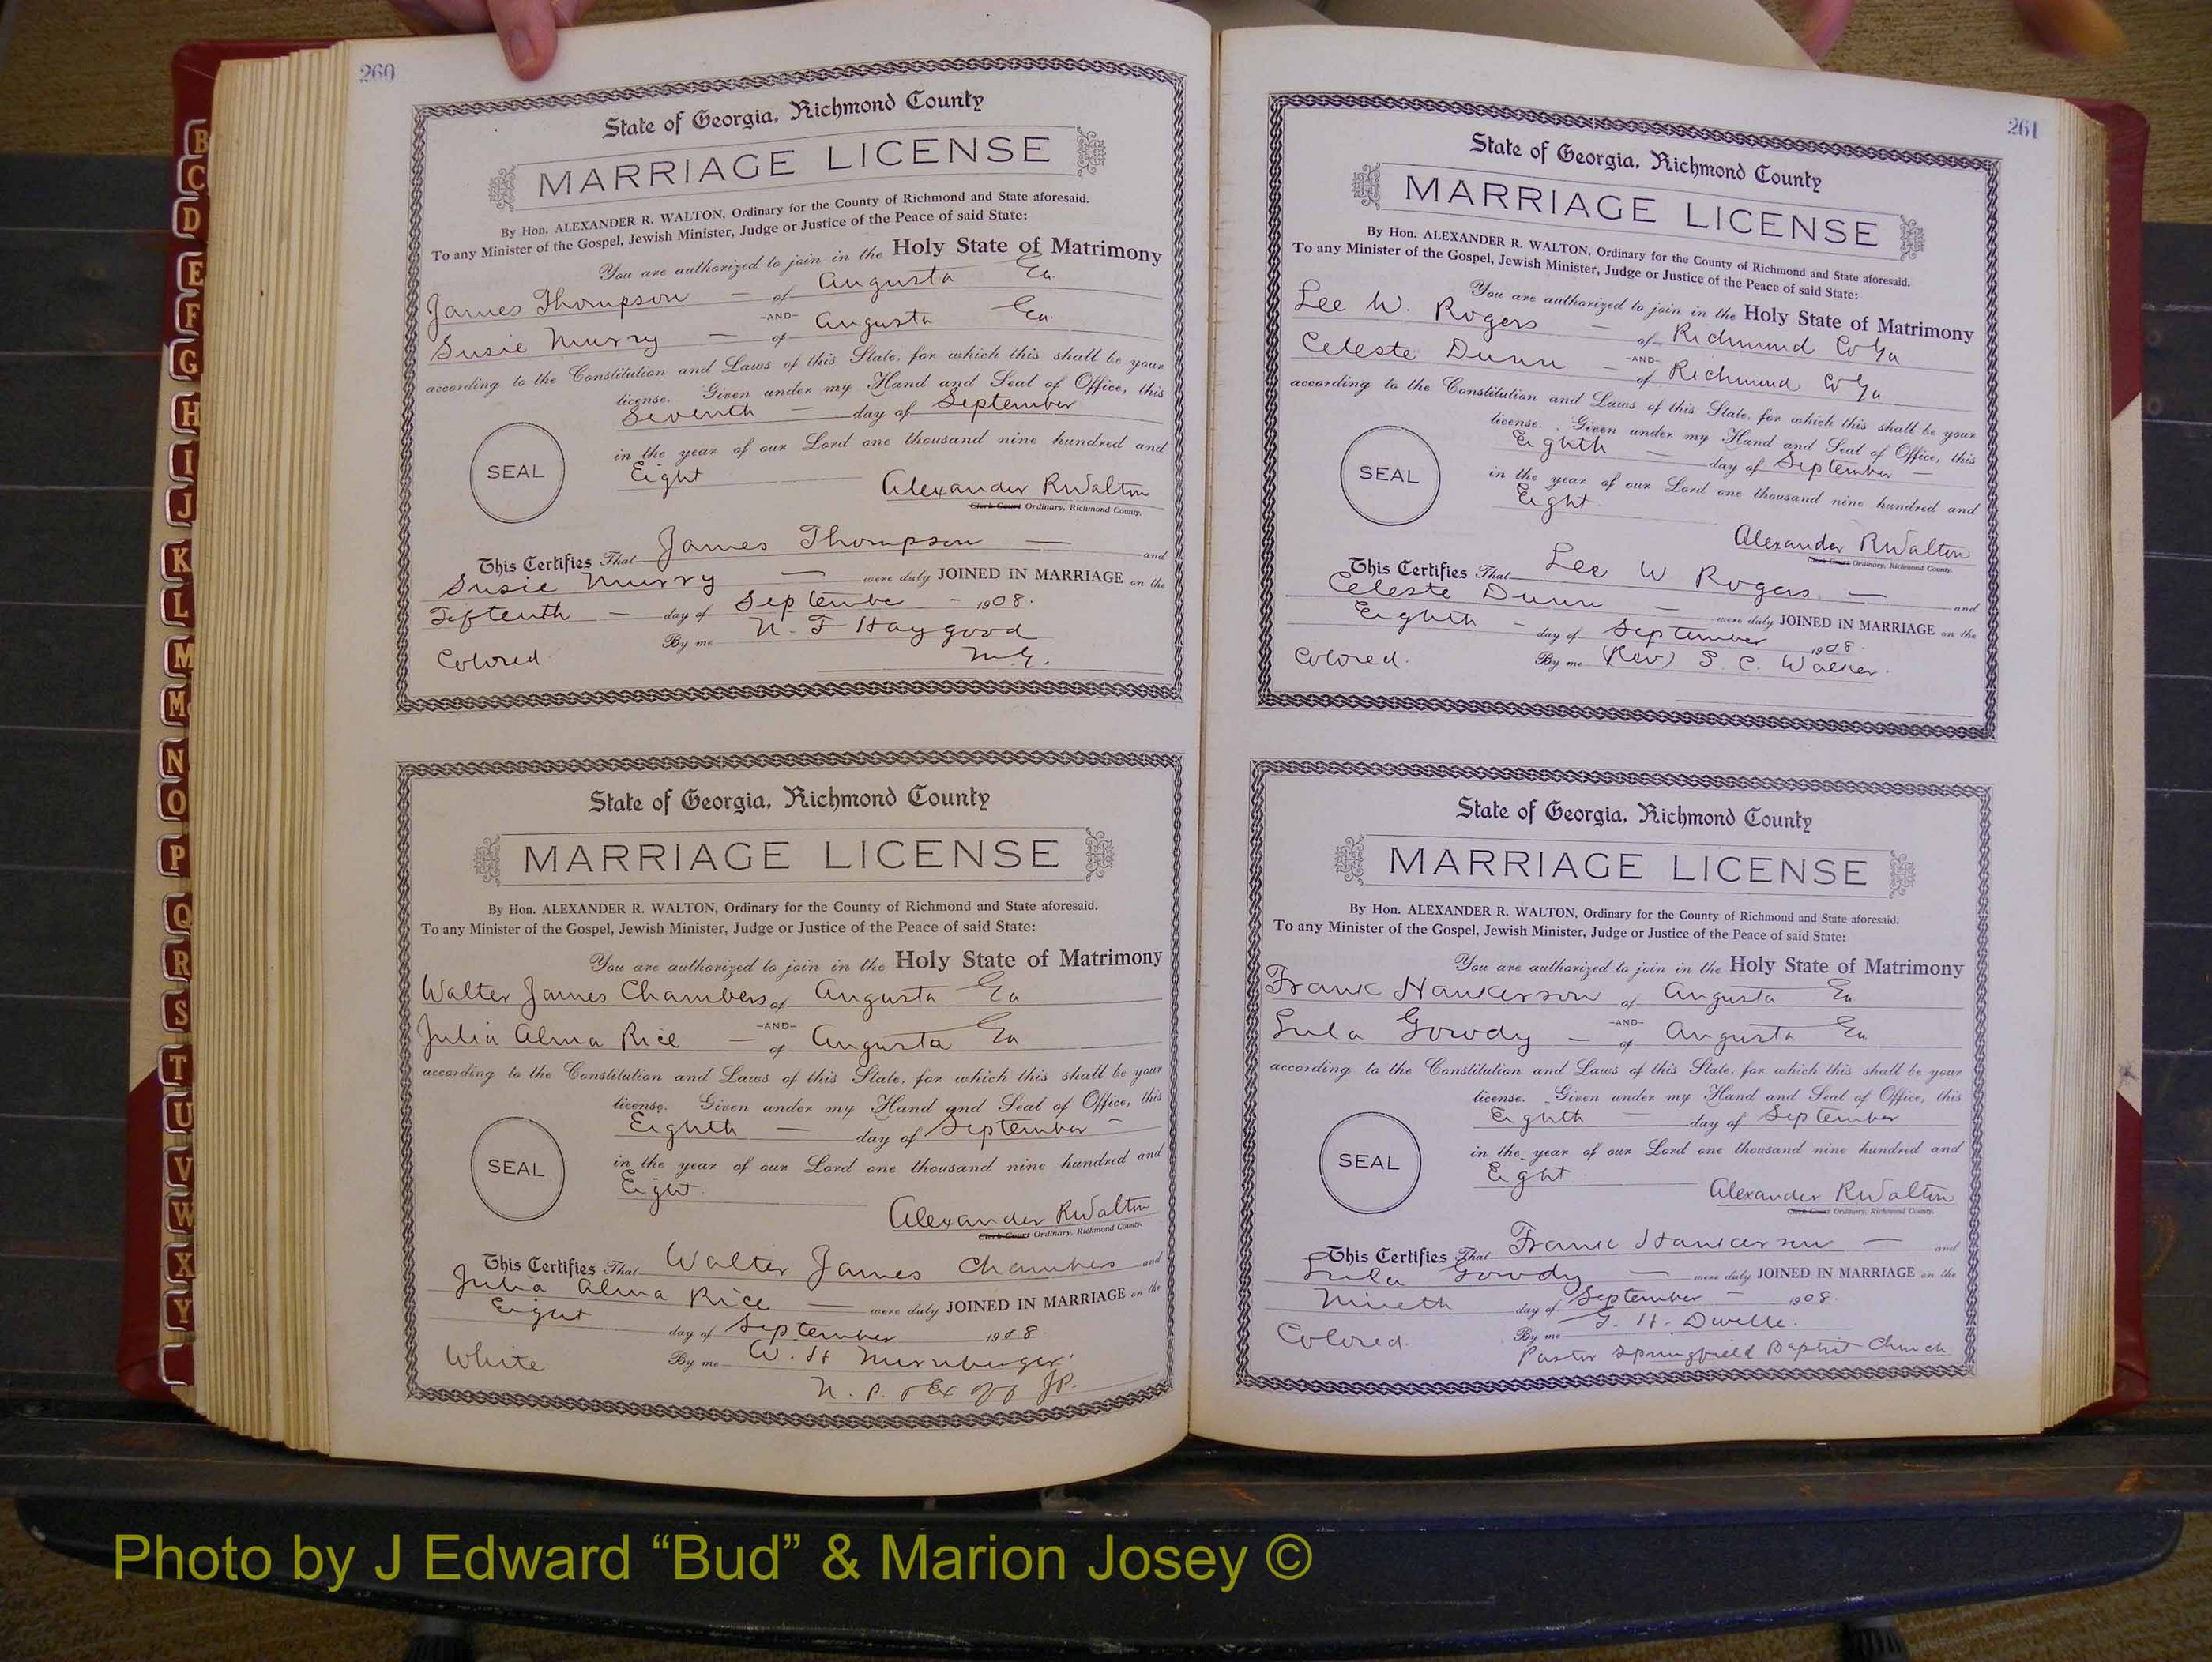 260
State of Georgia, Richmond County
MARRIAGE LICENSE
By Hon. ALEXANDER R. WALTON, Ordinary for the County of Richmond and State aforesaid.
To any Minister of the Gospel, Jewish Minister, Judge or Justice of the Peace of said State:
You are authorized to join in the Holy State of Matrimony
James Thompson — of Augusta Ga.
-AND-
Susie Murry — of Augusta Ga.
according to the Constitution and Laws of this State, for which this shall be your
license. Given under my Hand and Seal of Office, this
Seventh — day of September
in the year of our Lord one thousand nine hundred and
SEAL
Eight
Alexander R Walton
Clerk Court Ordinary, Richmond County.
This Certifies That James Thompson — and
Susie Murry — were duly JOINED IN MARRIAGE on the
Fifteenth — day of September — 1908.
By me N. F Haygood
Colored
M.G.
State of Georgia, Richmond County
MARRIAGE LICENSE
By Hon. ALEXANDER R. WALTON, Ordinary for the County of Richmond and State aforesaid.
To any Minister of the Gospel, Jewish Minister, Judge or Justice of the Peace of said State:
You are authorized to join in the Holy State of Matrimony
Walter James Chambers of Augusta Ga
-AND-
Julia Alma Rice — of Augusta Ga
according to the Constitution and Laws of this State, for which this shall be your
license. Given under my Hand and Seal of Office, this
Eighth — day of September —
in the year of our Lord one thousand nine hundred and
SEAL
Eight
Alexander R Walton
Clerk Court Ordinary, Richmond County.
This Certifies That Walter James Chambers and
Julia Alma Rice — were duly JOINED IN MARRIAGE on the
Eight day of September 1908
White By me W. H Nurnberger
N. P. & Ex off JP.
261
State of Georgia, Richmond County
MARRIAGE LICENSE
By Hon. ALEXANDER R. WALTON, Ordinary for the County of Richmond and State aforesaid.
To any Minister of the Gospel, Jewish Minister, Judge or Justice of the Peace of said State:
You are authorized to join in the Holy State of Matrimony
Lee W. Rogers — of Richmond Co Ga
-AND-
Celeste Dunn — of Richmond Co Ga
according to the Constitution and Laws of this State, for which this shall be your
license. Given under my Hand and Seal of Office, this
Eighth — day of September —
in the year of our Lord one thousand nine hundred and
SEAL
Eight
Alexander R Walton
Clerk Court Ordinary, Richmond County.
This Certifies That Lee W Rogers — and
Celeste Dunn — were duly JOINED IN MARRIAGE on the
Eighth — day of September 1908
Colored. By me (Rev) S. C. Walker.
State of Georgia, Richmond County
MARRIAGE LICENSE
By Hon. ALEXANDER R. WALTON, Ordinary for the County of Richmond and State aforesaid.
To any Minister of the Gospel, Jewish Minister, Judge or Justice of the Peace of said State:
You are authorized to join in the Holy State of Matrimony
Frank Hankerson of Augusta Ga
-AND-
Lula Gowdy — of Augusta Ga
according to the Constitution and Laws of this State, for which this shall be your
license. Given under my Hand and Seal of Office, this
Eighth — day of September
in the year of our Lord one thousand nine hundred and
SEAL
Eight
Alexander R Walton
Clerk Court Ordinary, Richmond County.
This Certifies That Frank Hankerson — and
Lula Gowdy — were duly JOINED IN MARRIAGE on the
Nineth day of September — 1908.
Colored. By me G. H. Dwelle.
Pastor Springfield Baptist Church
B
C
D
E
F
G
H
I
J
K
L
M
Mc
N
O
P
Q
R
S
T
U
V
W
X
Y
Photo by J Edward “Bud” & Marion Josey ©